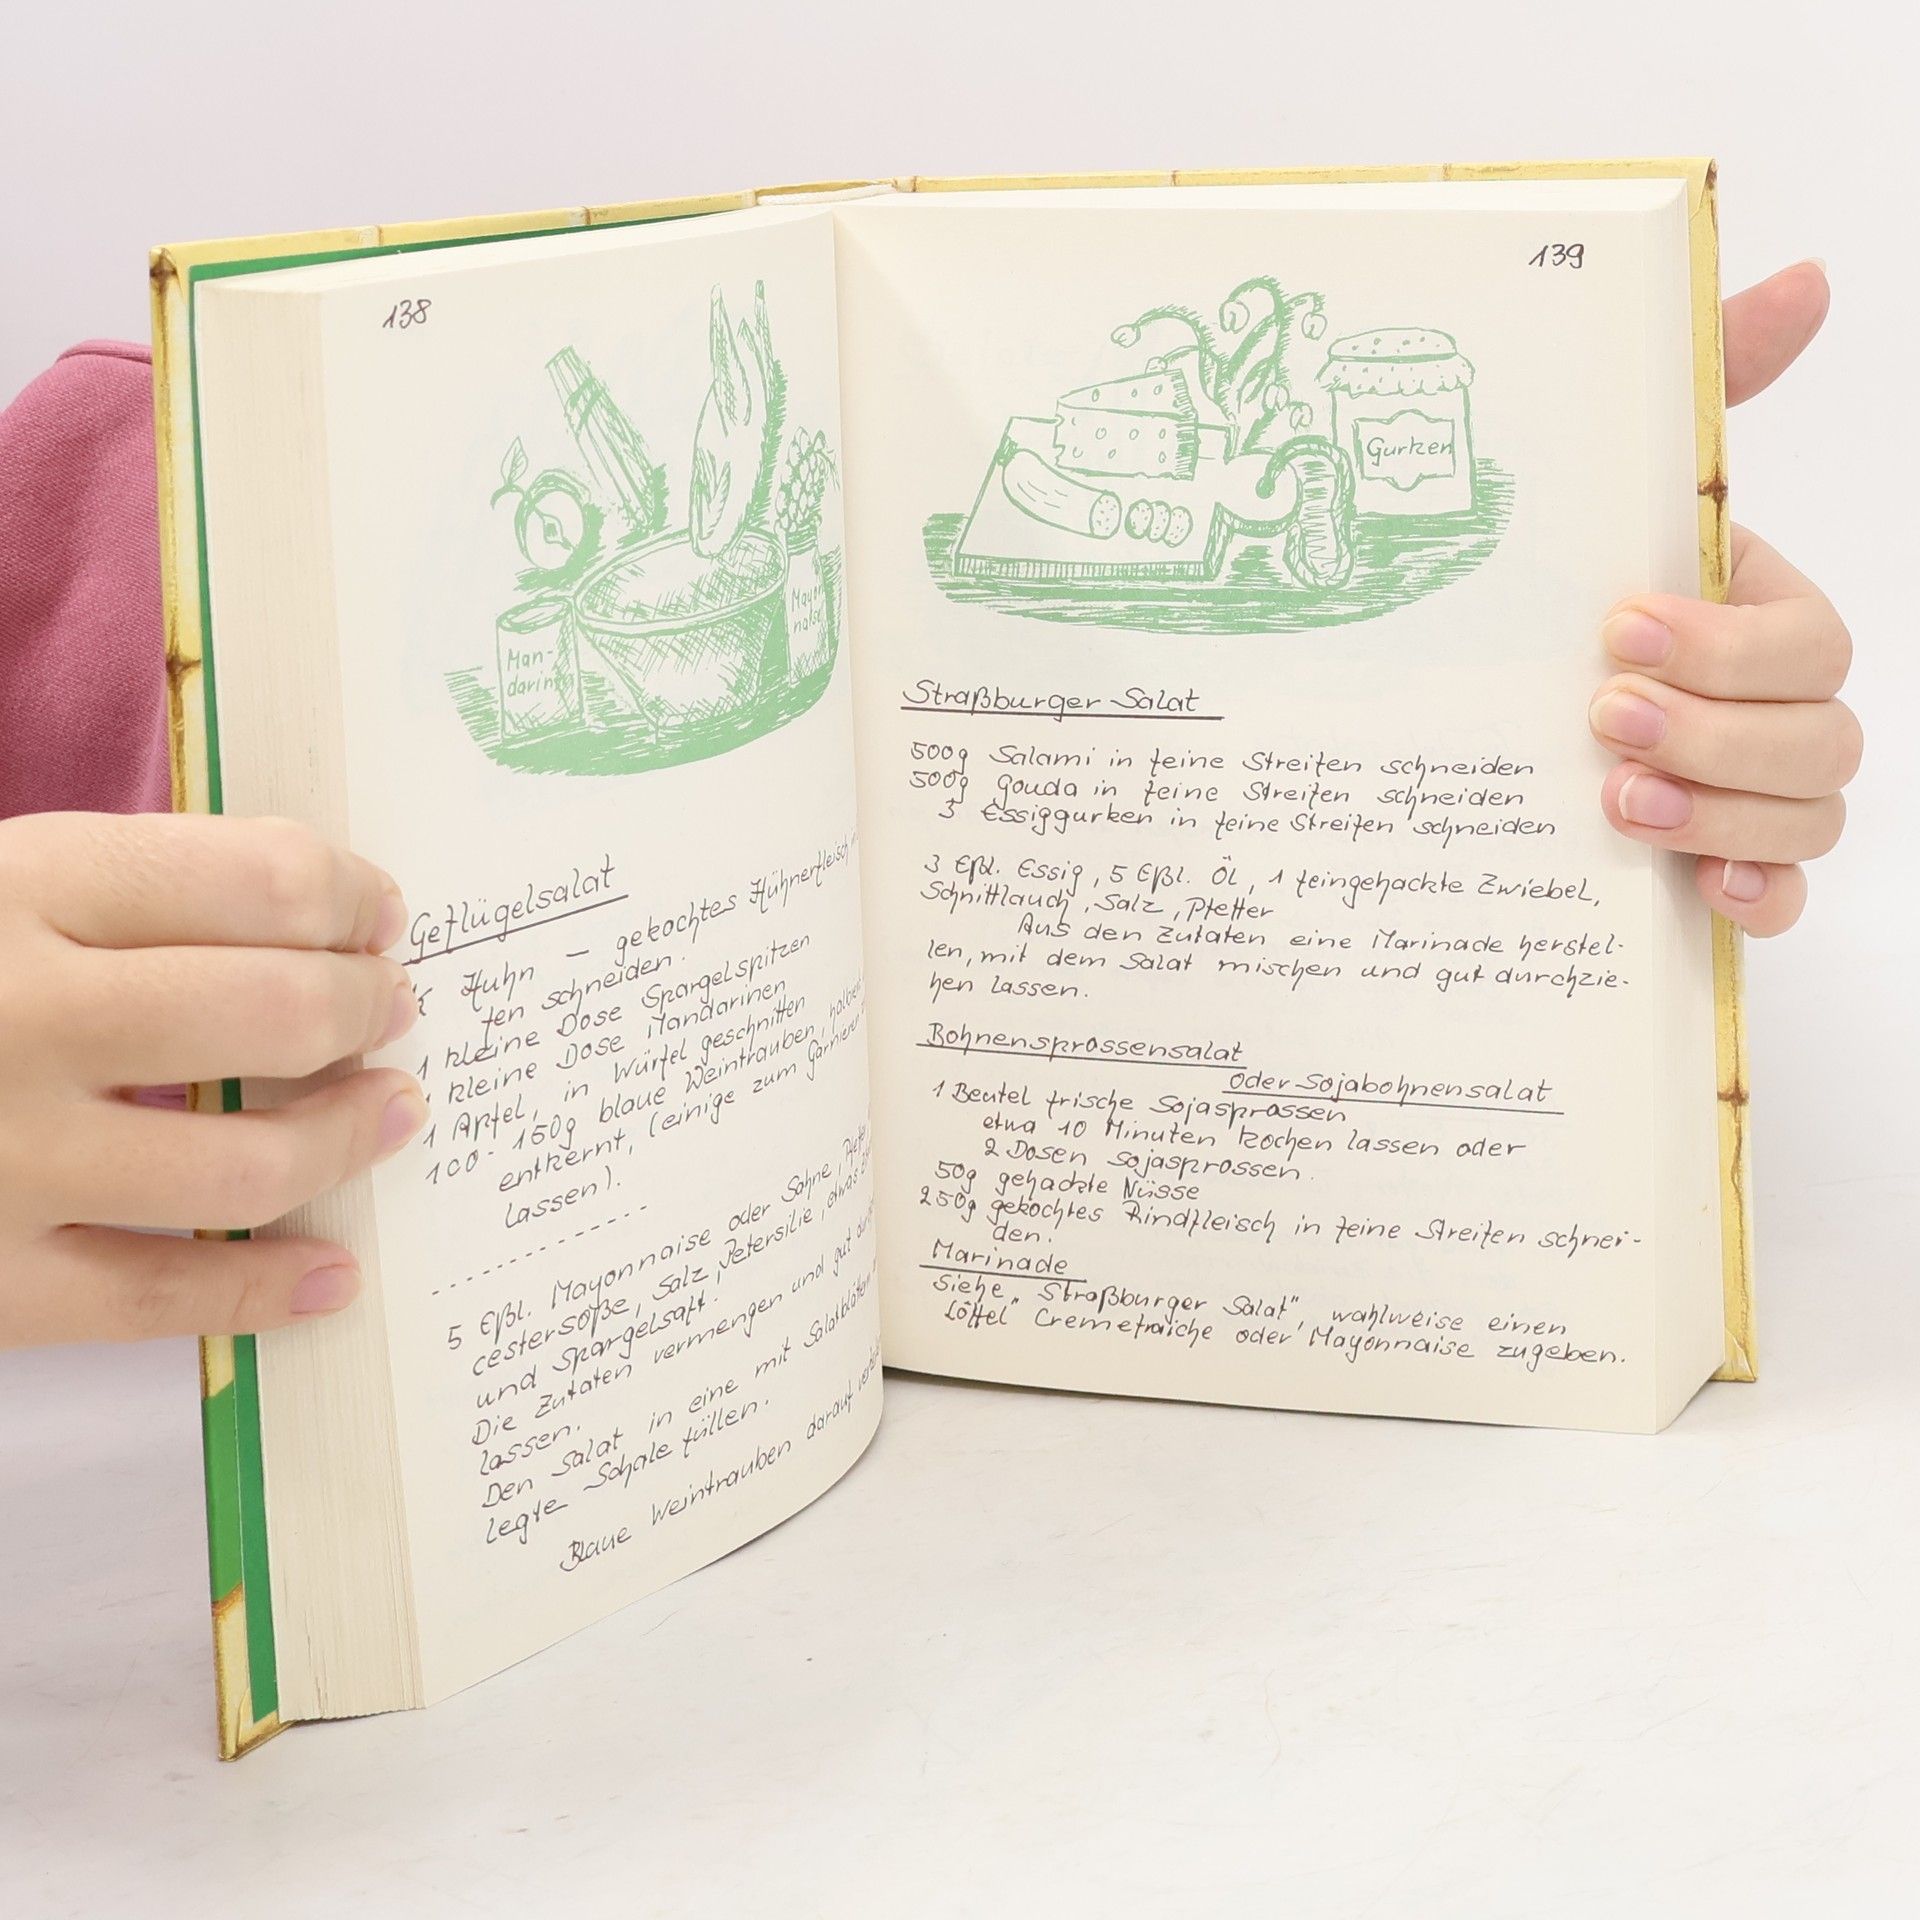 138
Man-
darin
Mayon
naise
Geflügelsalat
Huhn — gekochtes Hühnerfleisch
fen schneiden.
1 kleine Dose Spargelspitzen
1 kleine Dose Mandarinen
1 Apfel, in Würfel geschnitten
100 - 150g blaue Weintrauben, halbiert
entkernt, (einige zum Garnieren
lassen).
- - - - - - - - - - - -
5 Eßl. Mayonnaise oder Sahne,
cestersoße, Salz, Petersilie, etwas
und Spargelsaft.
Die Zutaten vermengen und gut
lassen.
Den Salat in eine mit Salatblättern
legte Schale füllen.
Blaue Weintrauben darauf
139
Gurken
Straßburger Salat
500g Salami in feine Streifen schneiden
500g Gouda in feine Streifen schneiden
3 Essiggurken in feine Streifen schneiden
3 Eßl. Essig, 5 Eßl. Öl, 1 feingehackte Zwiebel,
Schnittlauch, Salz, Pfeffer
Aus den Zutaten eine Marinade herstel-
len, mit dem Salat mischen und gut durchzie-
hen lassen.
Bohnensprossensalat
oder Sojabohnensalat
1 Beutel frische Sojasprossen
etwa 10 Minuten kochen lassen oder
2 Dosen Sojasprossen.
50g gehackte Nüsse
250g gekochtes Rindfleisch in feine Streifen schnei-
den.
Marinade
siehe „Straßburger Salat", wahlweise einen
Löffel" Cremefraiche oder Mayonnaise zugeben.